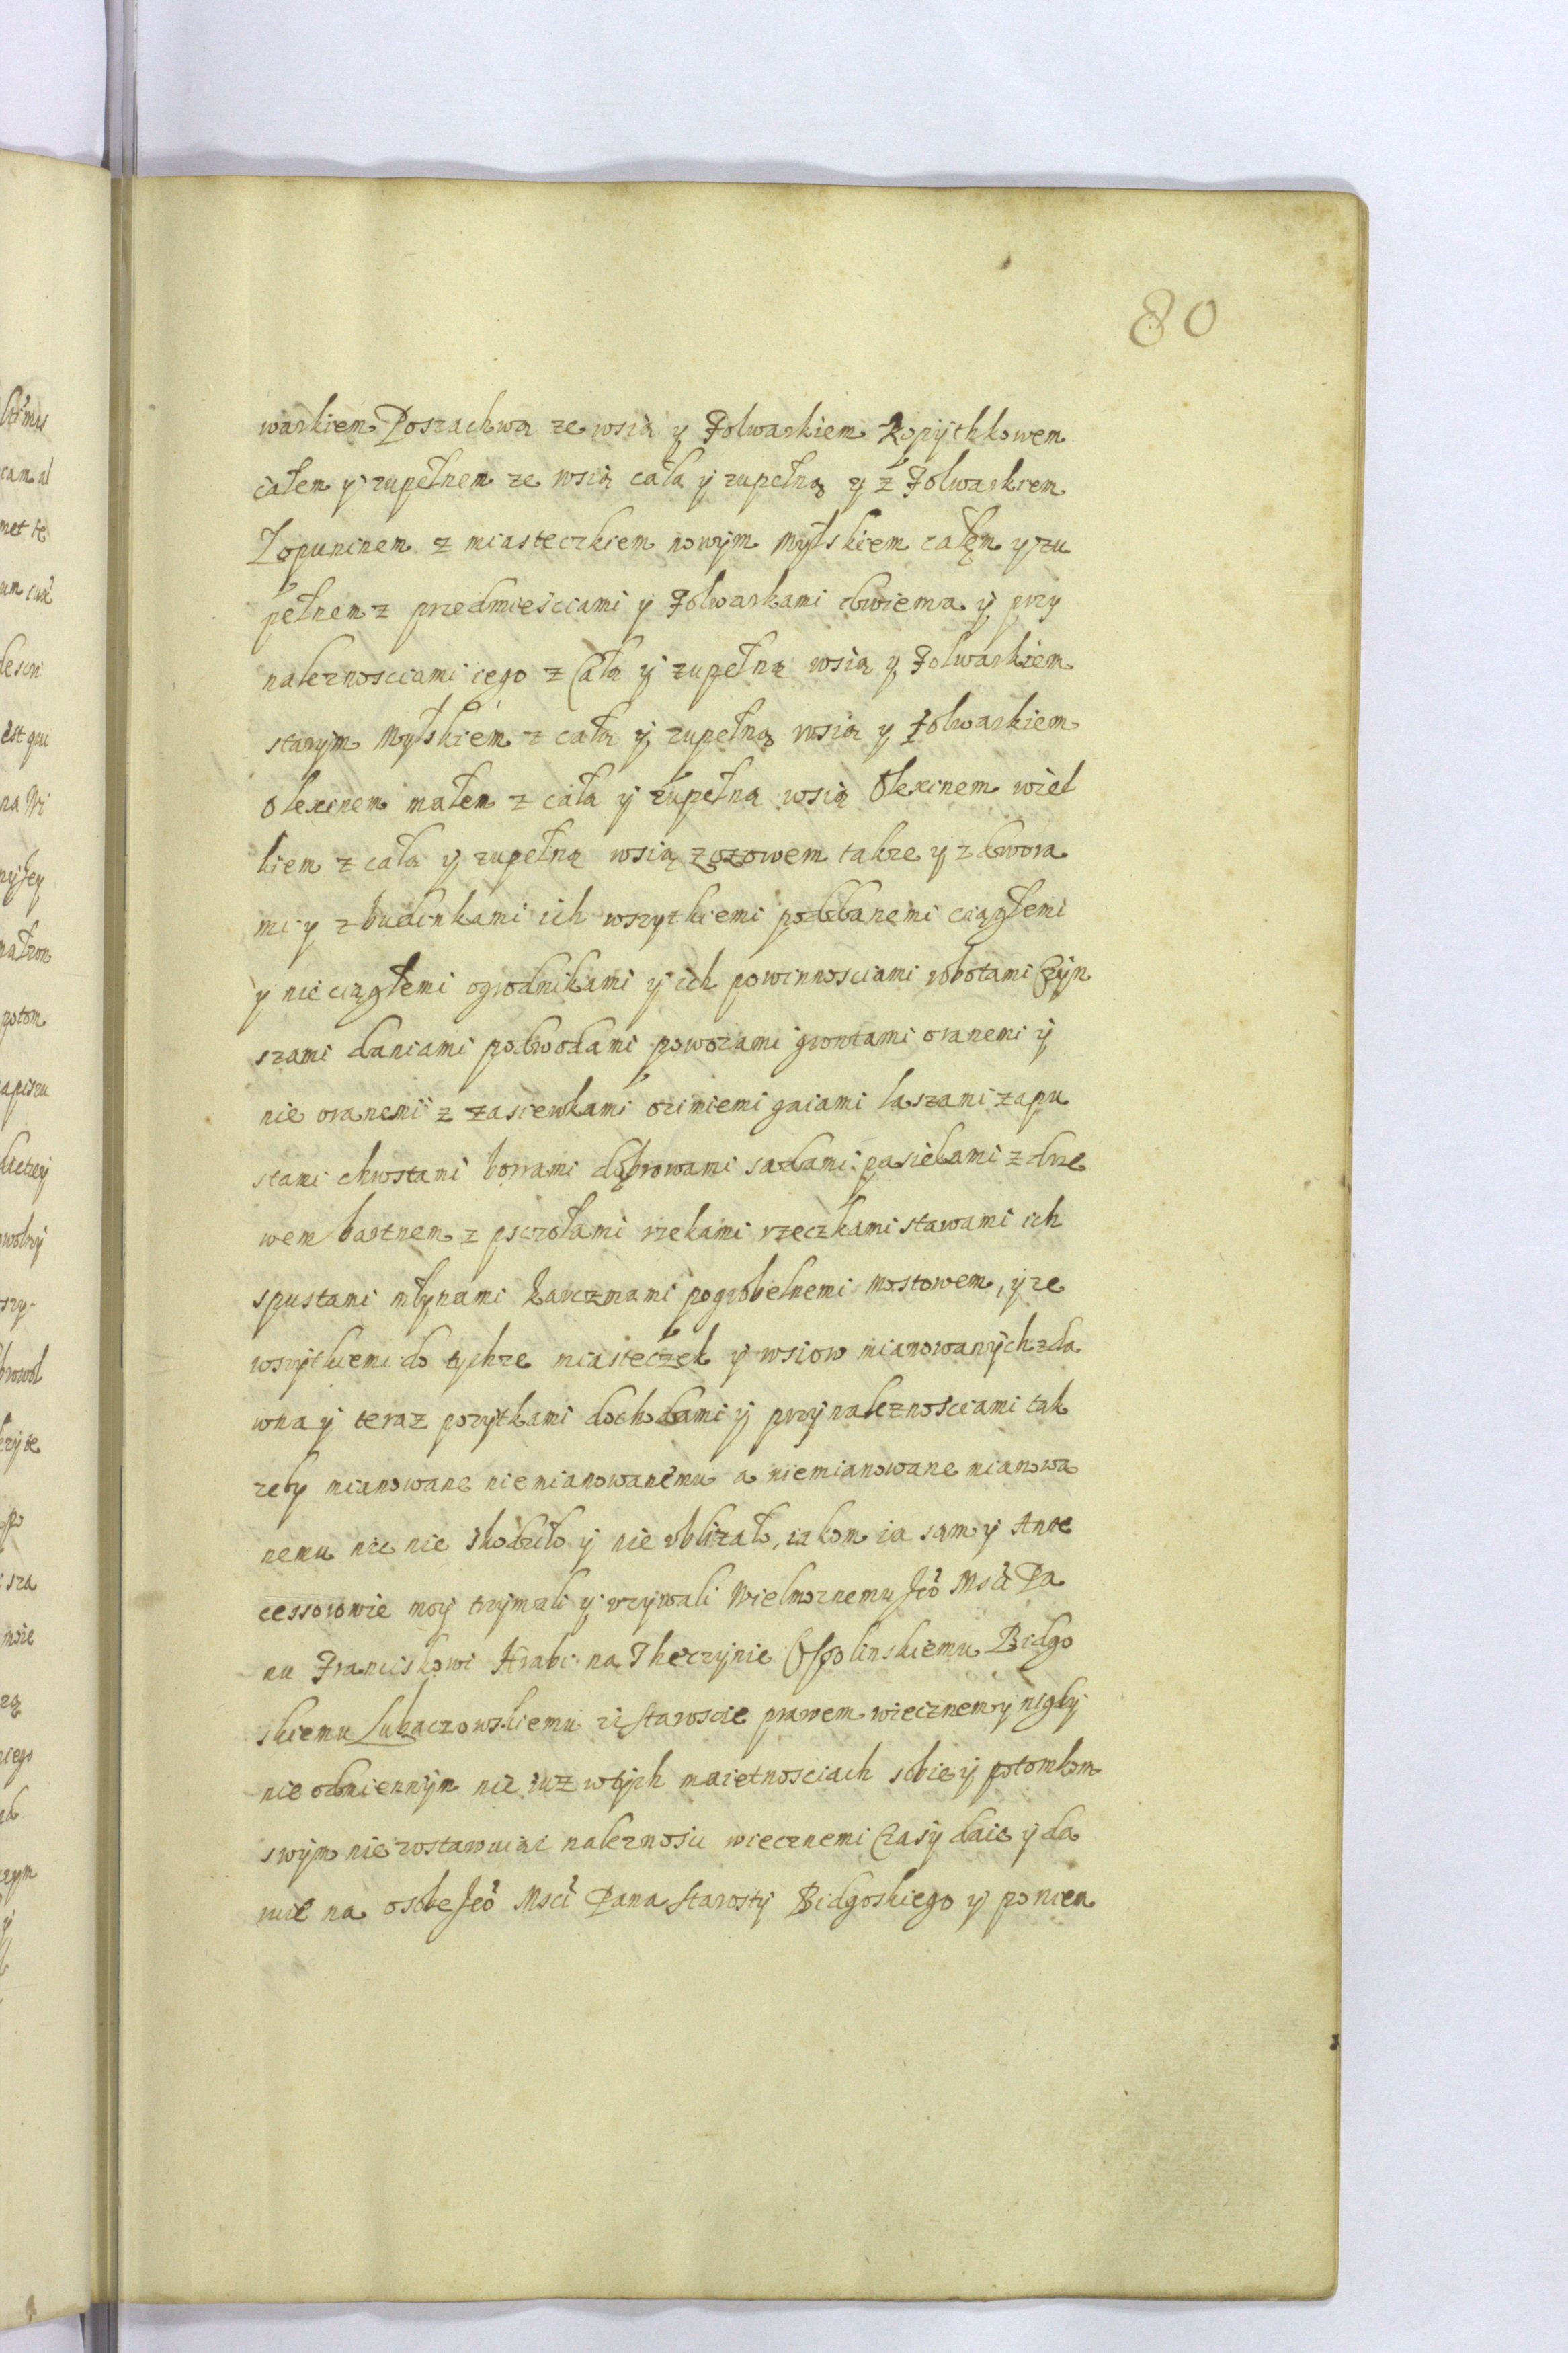 80
warkiem Poszachwą ze wsią y Folwarkiem Kopythkowem
całem y zupełnem ze wsią całą y zupełną y z Folwarkiem
Łopuninem z miasteczkiem nowym Mylskiem całęm y zu
pełnem z przedmiesciami y Folwarkami dwiema y przy
naleznosciami iego z Całą y zupełną wsią y Folwarkiem
starym Mylskiem z całą y zupełną wsią y Folwarkiem
Olexinem małem z całą y zupełną wsią Olexinem wiel
kiem z całą y zupełną wsią Zozowem takze y z dwora
mi y z budinkami ich wszytkiemi poddanemi ciągłemi
y nie ciągłemi ogrodnikami y ich powinnosciami robotami Czyn
szami daniami podwodami powozami grontami oranemi y
nie oranemi z zasiewkami ozimiemi gaiami laszami zapu
stami chrostami borami dąbrowami sadami pasiekami z drze
wem bartnem z pszczołami rzekami rzeczkami stawami ich
spustami młynami karczmami pogrobelnemi mostowem, y ze
wszytkiemi do tychze miasteczek y wsiow mianowanych zda
wna y teraz pozytkami dochodami y przynaleznosciami tak
zeby mianowane niemianowanemu a niemianowane mianowa
nemu nic nie skodziło y nie ublizało, iakom ia sam y Ante
cessorowie moy trzymali y uzywali Wielmoznemu Jeo Mści Pa
nu Franciskowi Hrabi na Theczynie Ossolinskiemu Bidgo
skiemu Lubaczowskiemu zc Staroscie prawem wiecznem y nigdy
nie odmiennym nic iuz w tych maietnosciach sobie y potomkom
swym nie zostawuiąc naleznosci wiecznemi Czasy daie y da
ruie na osobe Jeo Mści Pana Starosty Bidgoskiego y po niem